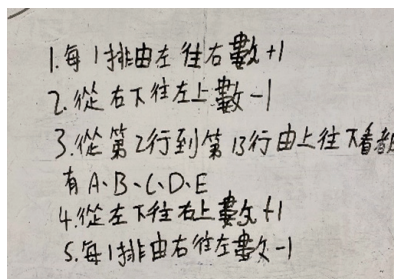 1.每1排由左往右數+1
2.從右下往左上數-1
3.從第2行到第13行由上往下看都
有A、B、C、D、E
4.從左下往右上數+1
5.每1排由右往左數-1